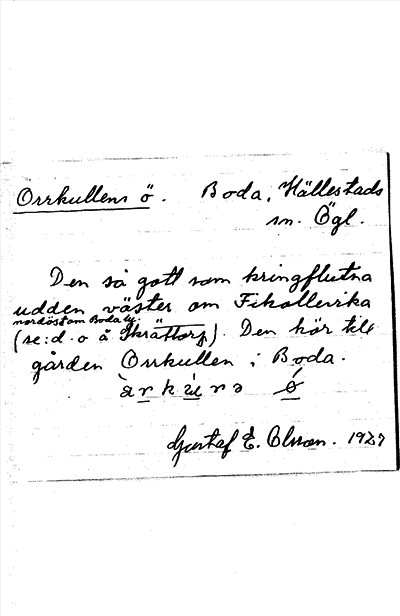 Orrkullens ö. Boda, Hällestads
sn. Ögl.
Den så gott som kringflutna
udden väster om Fikallevika
nordöst om Boda by.
(se: d. o å Skrättorp). Den hör till
gården Orrkullen i Boda.
àrkurə ó
Gustaf E. Olsson. 1927